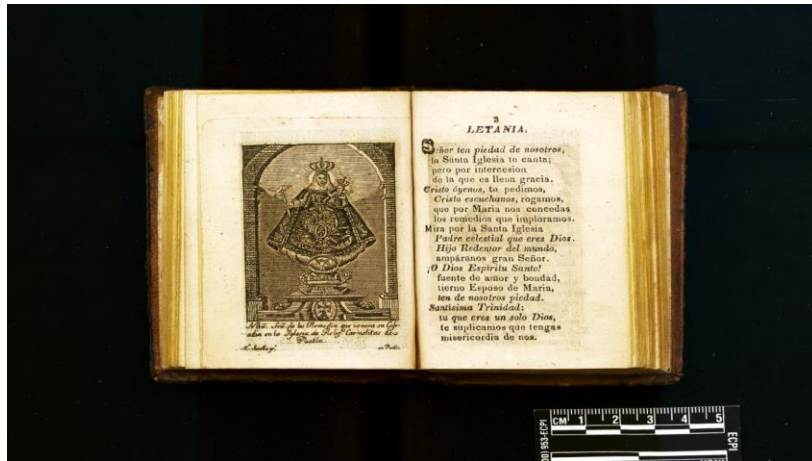 Ntrâ. Srâ. de los Remedios que venera su Cofra
día en la Iglesia de Relig.s Carmelitas de
Puebla.
en Puebla
3
LETANIA.
Señor ten piedad de nosotros,
la Santa Iglesia te canta;
pero por intercesion
de la que es llena gracia.
Cristo óyenos, tu pedimos,
Cristo escuchanos, rogamos,
que por Maria nos concedas
los remedios que imploramos.
Mira por la Santa Iglesia
Padre celestial que eres Dios.
Hijo Redentor del mundo,
ampáranos gran Señor.
¡O Dios Espíritu Santo!
fuente de amor y bondad,
tierno Esposo de Maria,
ten de nosotros piedad.
Santísima Trinidad:
tu que eres un solo Dios,
te suplicamos que tengas
misericordia de nos.
CM 1 2 3 4 5
953-ECPI
ECPI